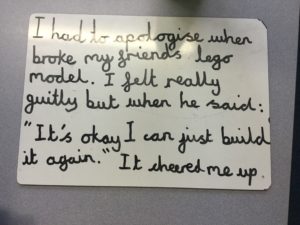 I had to apologise when
broke my friends lego
model. I felt really
guilty but when he said:
"It's okay I can just build
it again." It cheered me up